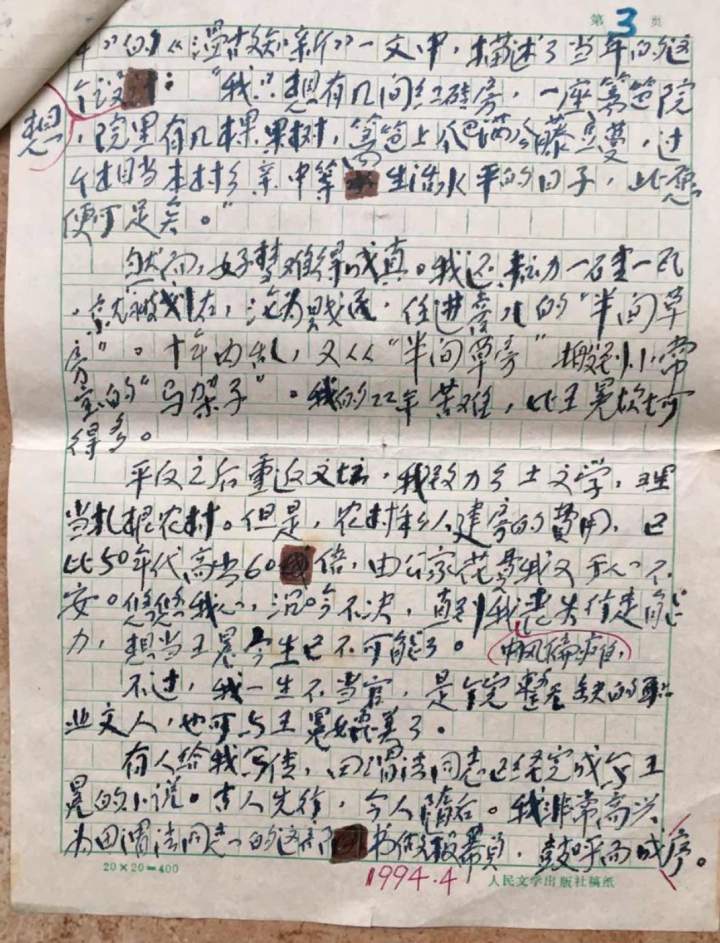 第 3 页
年”的《温故知新》一文中，描述了当年的这
个设想：“我只想有几间红砖房，一座篱笆院
，院里有几棵果树，篱笆上爬满藤萝豆蔓，过
个相当本村乡亲中等生活水平的日子，此愿
便可足矣。”
然而，好梦难得成真。我还未动一石一瓦
，就被划右，沦为贱民，住进的“半间草
房”。十年内乱，又从“半间草房”搬到小小
的“马架子”。我的22年苦难，比王冕坎坷
得多。
平反之后重返文坛，我致力乡土文学，理
当扎根农村。但是，农村私人建房的费用，已
比50年代高出60倍，由公家花费我又于心不
安。悠悠我心，沉吟不决，直到我中风偏瘫，丧失行走能
力，想当王冕今生已不可能了。
不过，我一生不当官，是个完整的职
业文人，也可与王冕媲美了。
有人给我写信，田渭法同志已经完成写王
冕的小说。古人先行，今人随后。我非常高兴
为田渭法同志的这部书做报幕员，鼓呼而成序。
20×20=400
1994.4
人民文学出版社稿纸